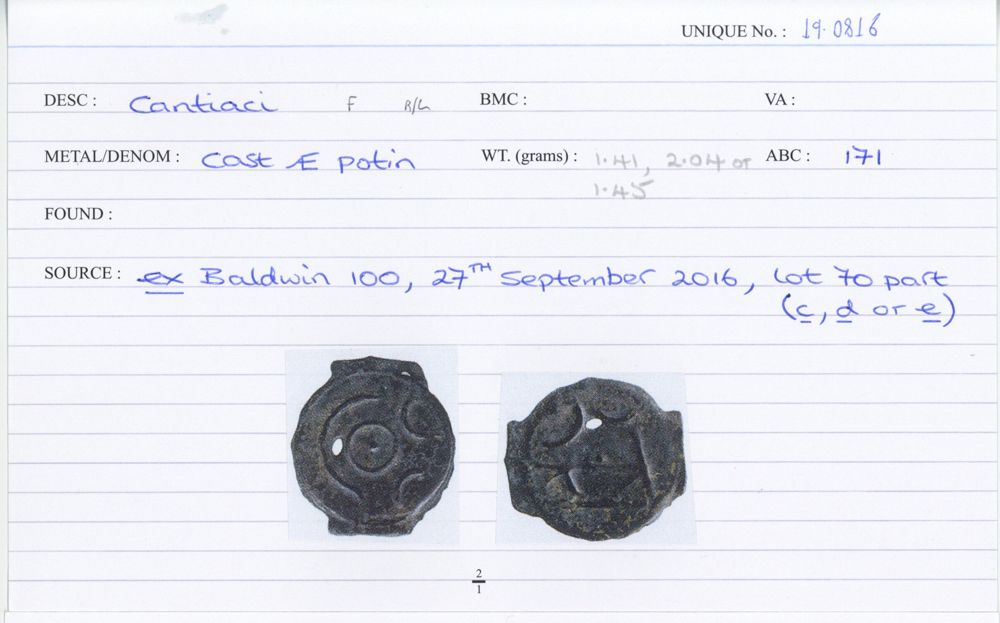 UNIQUE No. : 19.0816
DESC : Cantiaci F B/L BMC : VA :
METAL/DENOM : Cast Æ potin WT. (grams) : 1.41, 2.04 or 1.45 ABC : 171
FOUND :
SOURCE : ex Baldwin 100, 27TH September 2016, Lot 70 part
(c, d or e)
2
1